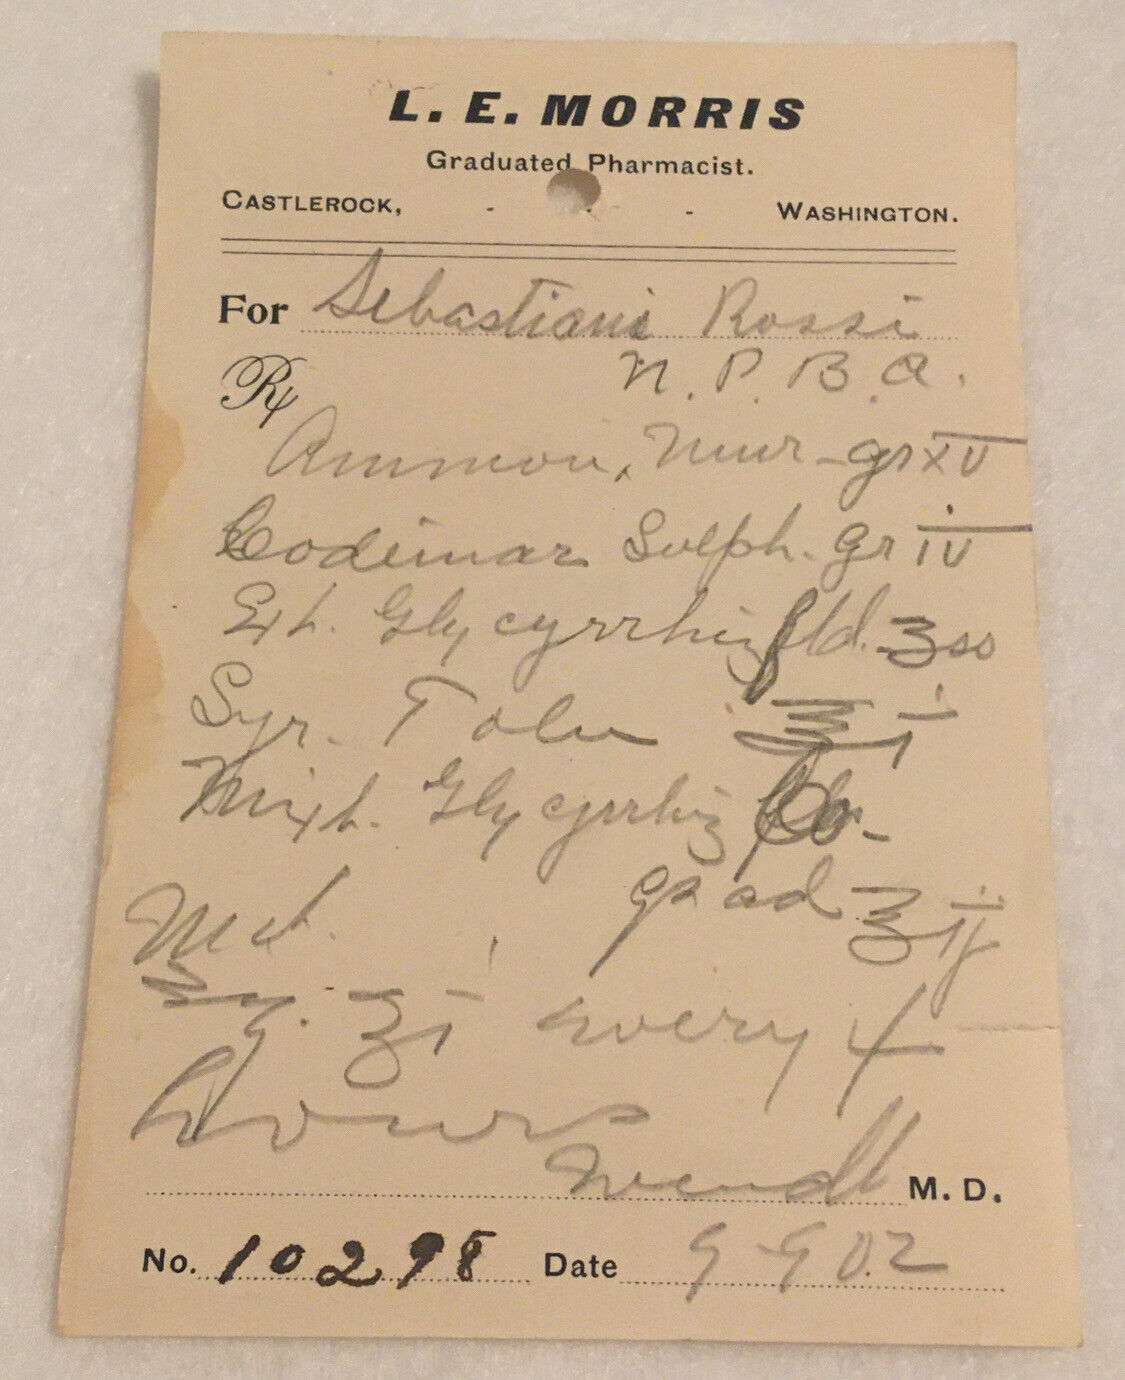 L. E. MORRIS
Graduated Pharmacist.
CASTLEROCK, - - - WASHINGTON.
For Sebastiani Rossi
Rx N. P. B. A.
Ammon. Mur - gr XV
Codeinae Sulph. gr iv
Ext. Glycyrrhiz fld. ʒss
Syr. Tolu ℥i
Mixt. Glycyrrhiz
ad ℥ij
M et
ʒi every 4
hours
M. D.
No. 10298 Date 9-9 02